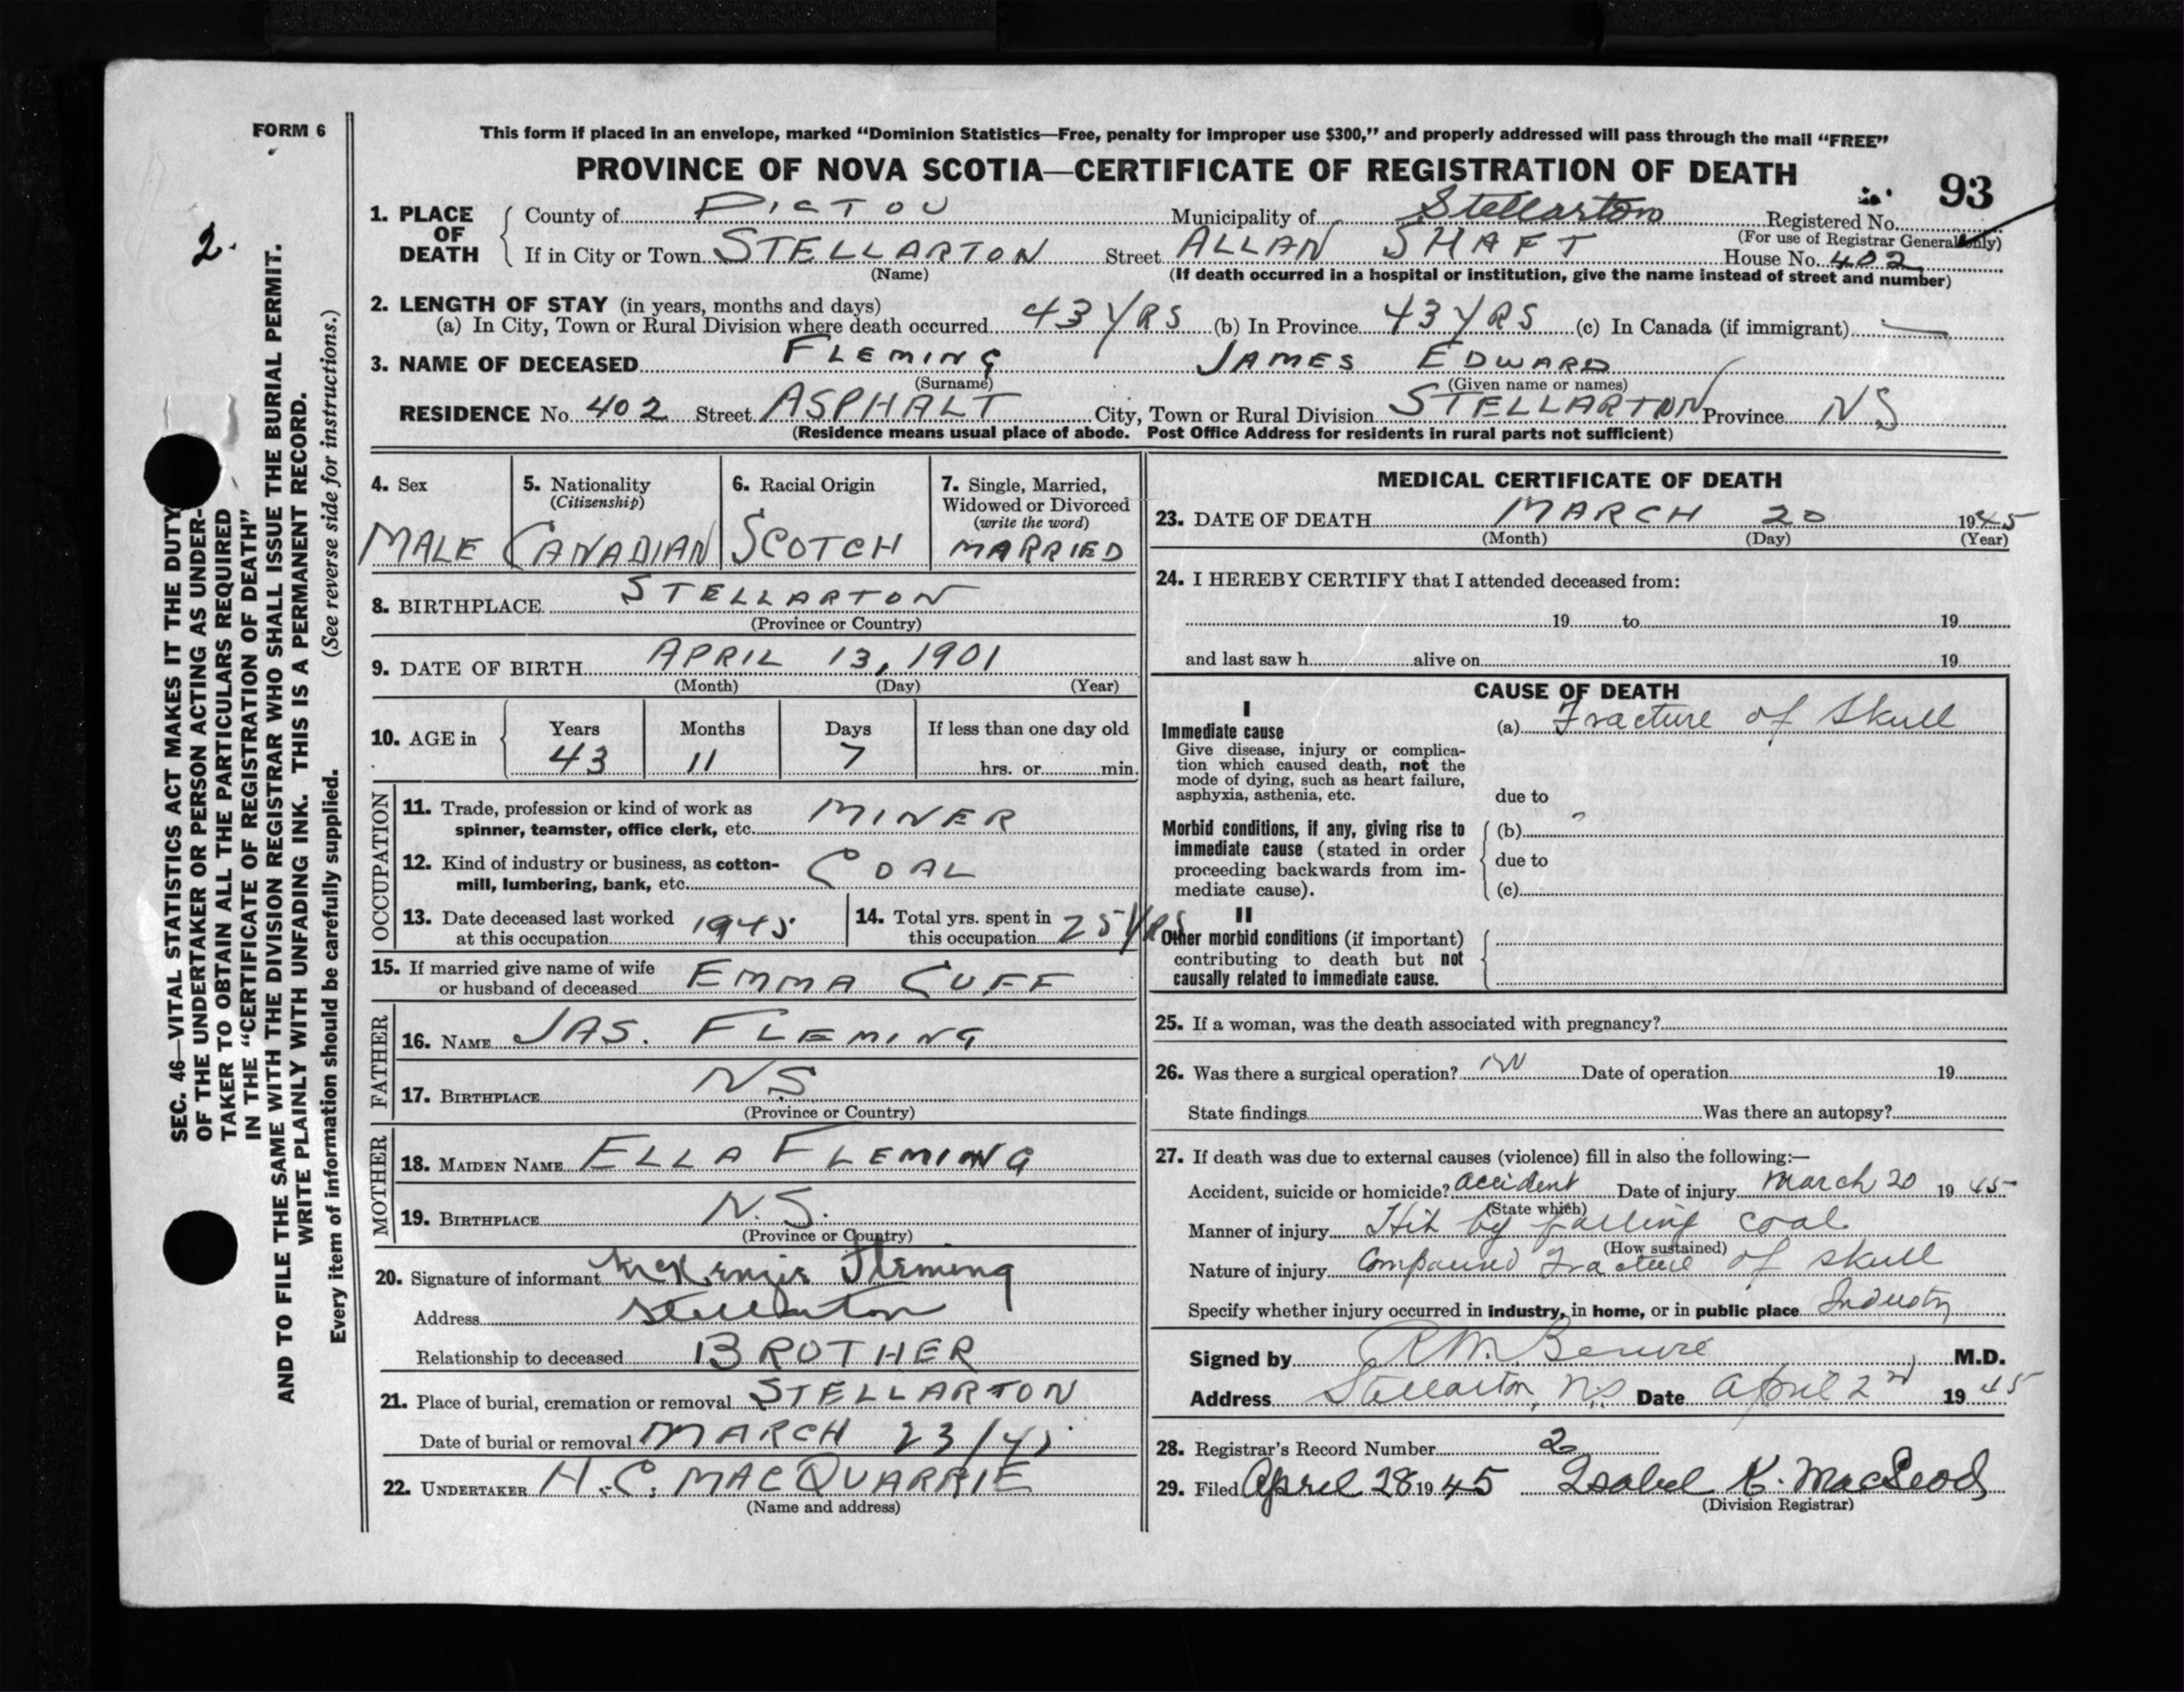 FORM 6
This form if placed in an envelope, marked “Dominion Statistics—Free, penalty for improper use $300,” and properly addressed will pass through the mail “FREE”
PROVINCE OF NOVA SCOTIA—CERTIFICATE OF REGISTRATION OF DEATH
93
2.
SEC. 46—VITAL STATISTICS ACT MAKES IT THE DUTY
OF THE UNDERTAKER OR PERSON ACTING AS UNDER-
TAKER TO OBTAIN ALL THE PARTICULARS REQUIRED
IN THE “CERTIFICATE OF REGISTRATION OF DEATH”
AND TO FILE THE SAME WITH THE DIVISION REGISTRAR WHO SHALL ISSUE THE BURIAL PERMIT.
WRITE PLAINLY WITH UNFADING INK. THIS IS A PERMANENT RECORD.
Every item of information should be carefully supplied. (See reverse side for instructions.)
1. PLACE OF DEATH
County of PICTOU Municipality of Stellarton Registered No.
(For use of Registrar General only)
If in City or Town STELLARTON Street ALLAN SHAFT House No. 402
(Name) (If death occurred in a hospital or institution, give the name instead of street and number)
2. LENGTH OF STAY (in years, months and days)
(a) In City, Town or Rural Division where death occurred 43 YRS (b) In Province 43 YRS (c) In Canada (if immigrant) —
3. NAME OF DECEASED FLEMING JAMES EDWARD
(Surname) (Given name or names)
RESIDENCE No. 402 Street ASPHALT City, Town or Rural Division STELLARTON Province NS
(Residence means usual place of abode. Post Office Address for residents in rural parts not sufficient)
4. Sex
MALE
5. Nationality
(Citizenship)
CANADIAN
6. Racial Origin
SCOTCH
7. Single, Married,
Widowed or Divorced
(write the word)
MARRIED
8. BIRTHPLACE STELLARTON
(Province or Country)
9. DATE OF BIRTH APRIL 13, 1901
(Month) (Day) (Year)
10. AGE in
Years Months Days If less than one day old
43 11 7 hrs. or min.
OCCUPATION
11. Trade, profession or kind of work as
spinner, teamster, office clerk, etc. MINER
12. Kind of industry or business, as cotton-
mill, lumbering, bank, etc. COAL
13. Date deceased last worked
at this occupation 1945
14. Total yrs. spent in
this occupation 25 YRS
15. If married give name of wife
or husband of deceased EMMA CUFF
FATHER
16. NAME JAS. FLEMING
17. BIRTHPLACE N.S.
(Province or Country)
MOTHER
18. MAIDEN NAME ELLA FLEMING
19. BIRTHPLACE N.S.
(Province or Country)
20. Signature of informant McKenzie Fleming
Address Stellarton
Relationship to deceased BROTHER
21. Place of burial, cremation or removal STELLARTON
Date of burial or removal MARCH 23/45
22. UNDERTAKER H.C. MACQUARRIE
(Name and address)
MEDICAL CERTIFICATE OF DEATH
23. DATE OF DEATH MARCH 20 1945
(Month) (Day) (Year)
24. I HEREBY CERTIFY that I attended deceased from:
19 to 19
and last saw h alive on 19
CAUSE OF DEATH
I
Immediate cause
Give disease, injury or complica-
tion which caused death, not the
mode of dying, such as heart failure,
asphyxia, asthenia, etc.
(a) Fracture of skull
due to
Morbid conditions, if any, giving rise to
immediate cause (stated in order
proceeding backwards from im-
mediate cause).
(b)
due to
(c)
II
Other morbid conditions (if important)
contributing to death but not
causally related to immediate cause.
25. If a woman, was the death associated with pregnancy?
26. Was there a surgical operation? Date of operation 19
State findings Was there an autopsy?
27. If death was due to external causes (violence) fill in also the following:—
Accident, suicide or homicide? accident Date of injury March 20 1945
(State which)
Manner of injury Hit by falling coal
(How sustained)
Nature of injury Compound Fracture of skull
Specify whether injury occurred in industry, in home, or in public place Industry
Signed by R.M. M.D.
Address Stellarton, N.S. Date April 2nd 1945
28. Registrar's Record Number 2
29. Filed April 28 1945 Isabel K. MacLeod
(Division Registrar)